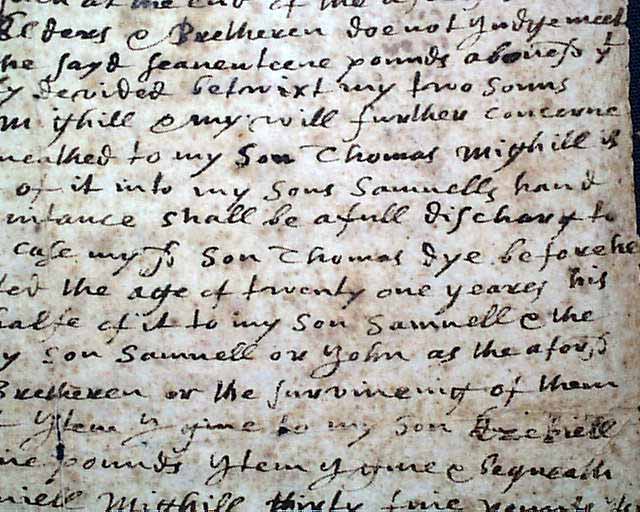 at the end of the
Elders & Bretheren doe not Judge meet
he sayd seauenteene pounds abouesd
ly devided betwixt my two Sonns
Mighill & my will further concerne
neathed to my Son Thomas Mighill is
of it into my Sons Samuells hand
ittance shall be a full discharg to
case my sd Son Thomas dye before he
ted the age of twenty one yeares his
halfe of it to my Son Samuell & the
y Son Samuell or John as the aforsd
Bretheren or the surviueing of them
Item I giue to my Son Ezekiell
ue pounds Item I giue & bequeath
niell Mighill thirty fiue pounds